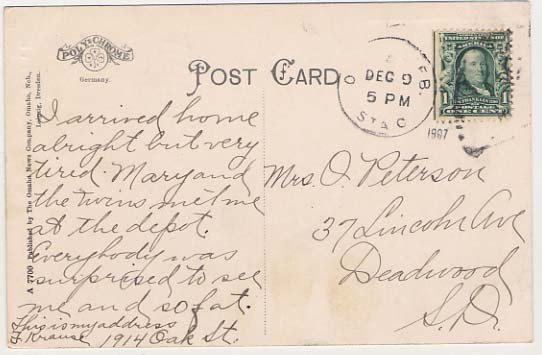 POLY-CHROME
Germany.
POST CARD
DEC 9
5 PM
STA C
1907
1
ONE CENT
A 7700 Published by The Omaha News Company, Omaha, Neb.,
Leipzig, Dresden.
I arrived home
alright but very
tired. Mary and
the twins met me
at the depot.
Everybody was
surprised to see
me and so fat.
This is my address
F. Krause 1914 Oak St.
Mrs. O. Peterson
37 Lincoln Ave
Deadwood
S.D.